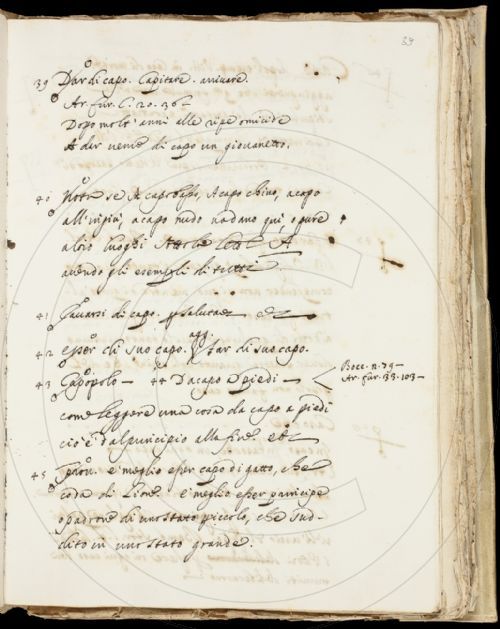 39
39 Dar di capo. Capitare. arrivare.
Ar. fur. C. 20. 36
Dopo molt' anni alle ripe omicide
A dar venne di capo un giovanetto.
40 Nota se A capo basso, A capo chino, a capo
all'ingiù, a capo nudo vadano qui, o pure
altri luoghi
avendo gli esempli di tutti
41 Cavarsi di capo. p salutare etc
42 esser di suo capo. agg. p far di suo capo.
43 Capopolo — 44 Da capo a piedi —
Bocc. n. 79 —
Ar. fur. 33. 103 —
come leggere una cosa da capo a piedi
cio è dal principio alla fine. etc
45 Prov. è meglio esser capo di gatto, che
coda di Lione. è meglio esser principe
o padrone di uno stato piccolo, che sud-
dito in uno stato grande